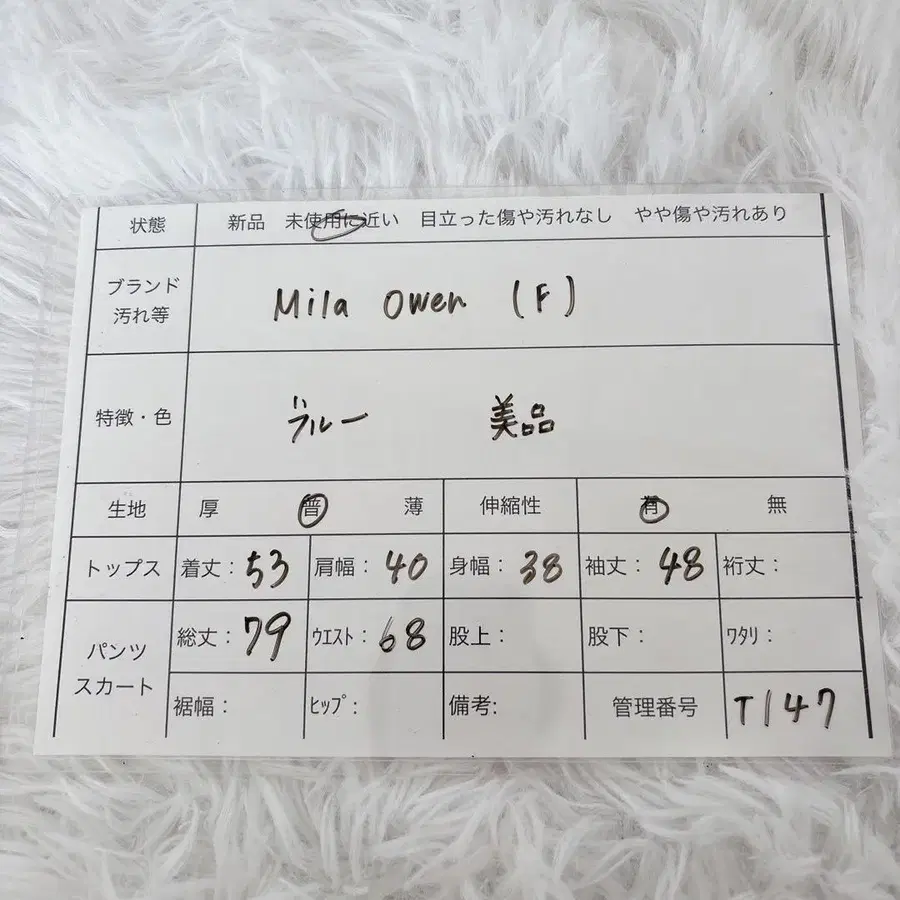 状態 新品 未使用に近い 目立った傷や汚れなし やや傷や汚れあり
ブランド
汚れ等
Mila Owen (F)
特徴・色 ブルー 美品
生地 厚 普 薄 伸縮性 有 無
トップス 着丈：53 肩幅：40 身幅：38 袖丈：48 裄丈：
パンツ
スカート
総丈：79 ウエスト：68 股上： 股下： ワタリ：
裾幅： ヒップ： 備考: 管理番号 T147